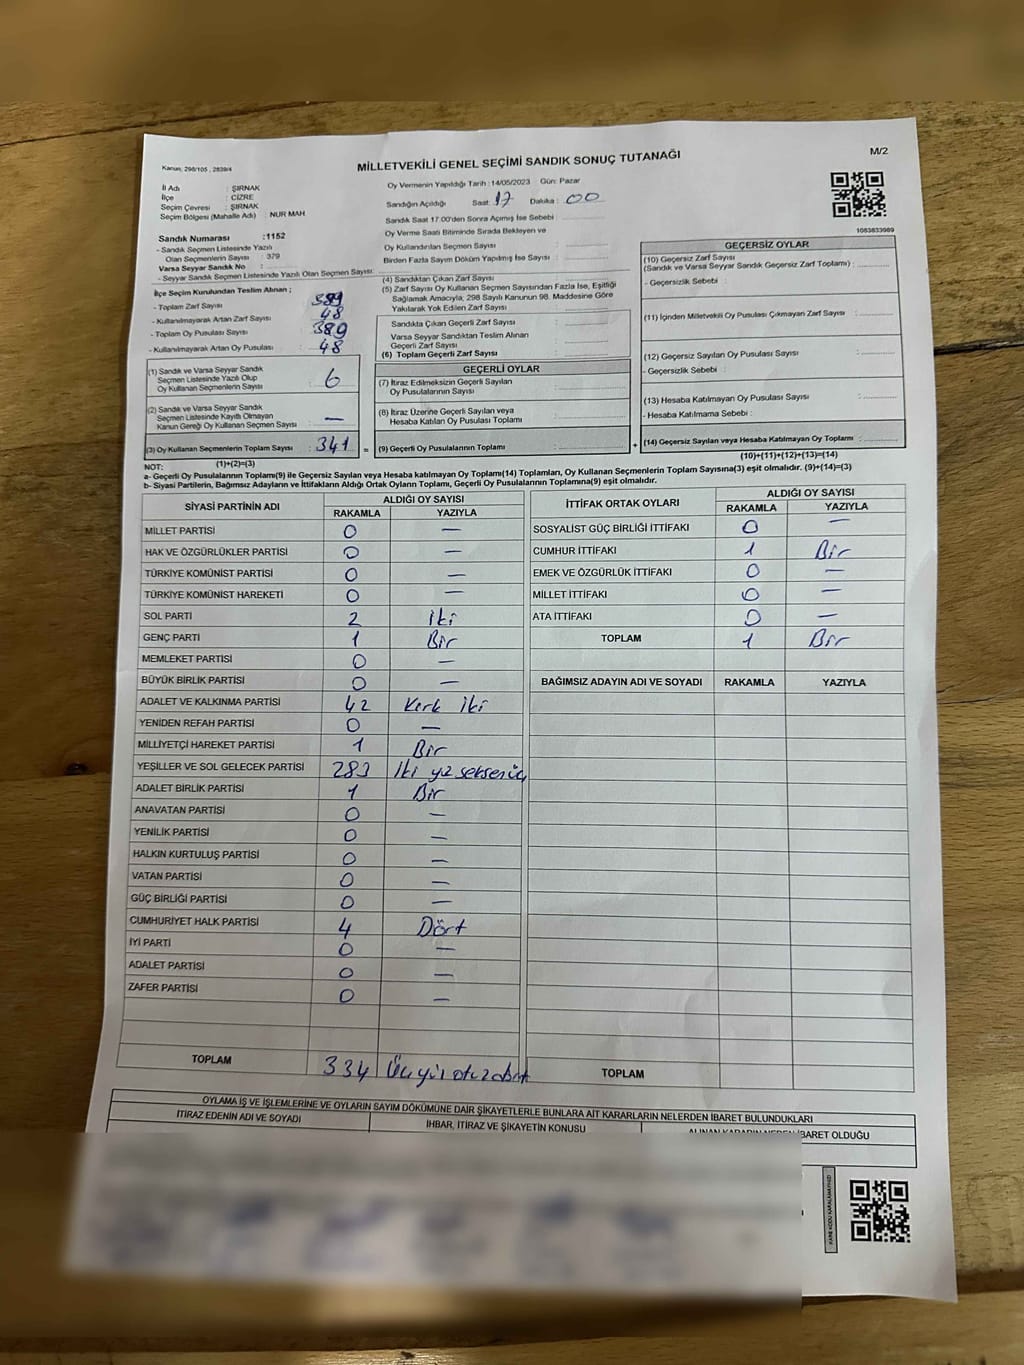 Kanun; 298/105 , 2839/4
MİLLETVEKİLİ GENEL SEÇİMİ SANDIK SONUÇ TUTANAĞI
M/2
İl Adı : ŞIRNAK
İlçe : CİZRE
Seçim Çevresi : ŞIRNAK
Seçim Bölgesi (Mahalle Adı) NUR MAH
Sandık Numarası :1152
- Sandık Seçmen Listesinde Yazılı
Olan Seçmenlerin Sayısı : 379
Varsa Seyyar Sandık No :
- Seyyar Sandık Seçmen Listesinde Yazılı Olan Seçmen Sayısı:
İlçe Seçim Kurulundan Teslim Alınan ;
- Toplam Zarf Sayısı : 389
- Kullanılmayarak Artan Zarf Sayısı : 48
- Toplam Oy Pusulası Sayısı : 389
- Kullanılmayarak Artan Oy Pusulası : 48
(1) Sandık ve Varsa Seyyar Sandık
Seçmen Listesinde Yazılı Olup
Oy Kullanan Seçmenlerin Sayısı : 6
(2) Sandık ve Varsa Seyyar Sandık
Seçmen Listesinde Kayıtlı Olmayan
Kanun Gereği Oy Kullanan Seçmen Sayısı : —
(3) Oy Kullanan Seçmenlerin Toplam Sayısı : 341
(1)+(2)=(3)
Oy Vermenin Yapıldığı Tarih :14/05/2023 Gün: Pazar
Sandığın Açıldığı Saat: 17 Dakika: 00
Sandık Saat 17.00'den Sonra Açımış İse Sebebi :
Oy Verme Saati Bitiminde Sırada Bekleyen ve
Oy Kullandırılan Seçmen Sayısı :
Birden Fazla Sayım Döküm Yapılmış İse Sayısı :
(4) Sandıktan Çıkan Zarf Sayısı :
(5) Zarf Sayısı Oy Kullanan Seçmen Sayısından Fazla İse, Eşitliği
Sağlamak Amacıyla; 298 Sayılı Kanunun 98. Maddesine Göre
Yakılarak Yok Edilen Zarf Sayısı :
Sandıkta Çıkan Geçerli Zarf Sayısı :
Varsa Seyyar Sandıktan Teslim Alınan
Geçerli Zarf Sayısı :
(6) Toplam Geçerli Zarf Sayısı :
GEÇERLİ OYLAR
(7) İtiraz Edilmeksizin Geçerli Sayılan
Oy Pusulalarının Sayısı :
(8) İtiraz Üzerine Geçerli Sayılan veya
Hesaba Katılan Oy Pusulası Toplamı :
= (9) Geçerli Oy Pusulalarının Toplamı :
1083833989
GEÇERSİZ OYLAR
(10) Geçersiz Zarf Sayısı
(Sandık ve Varsa Seyyar Sandık Geçersiz Zarf Toplamı) :
- Geçersizlik Sebebi :
(11) İçinden Milletvekili Oy Pusulası Çıkmayan Zarf Sayısı :
(12) Geçersiz Sayılan Oy Pusulası Sayısı :
- Geçersizlik Sebebi :
(13) Hesaba Katılmayan Oy Pusulası Sayısı :
- Hesaba Katılmama Sebebi :
+ (14) Geçersiz Sayılan veya Hesaba Katılmayan Oy Toplamı :
(10)+(11)+(12)+(13)=(14)
NOT:
a- Geçerli Oy Pusulalarının Toplamı(9) ile Geçersiz Sayılan veya Hesaba katılmayan Oy Toplamı(14) Toplamları, Oy Kullanan Seçmenlerin Toplam Sayısına(3) eşit olmalıdır. (9)+(14)=(3)
b- Siyasi Partilerin, Bağımsız Adayların ve İttifakların Aldığı Ortak Oyların Toplamı, Geçerli Oy Pusulalarının Toplamına(9) eşit olmalıdır.
SİYASİ PARTİNİN ADI ALDIĞI OY SAYISI
RAKAMLA YAZIYLA
MİLLET PARTİSİ 0 —
HAK VE ÖZGÜRLÜKLER PARTİSİ 0 —
TÜRKİYE KOMÜNİST PARTİSİ 0 —
TÜRKİYE KOMÜNİST HAREKETİ 0 —
SOL PARTİ 2 iki
GENÇ PARTİ 1 Bir
MEMLEKET PARTİSİ 0 —
BÜYÜK BİRLİK PARTİSİ 0 —
ADALET VE KALKINMA PARTİSİ 42 Kerk iki
YENİDEN REFAH PARTİSİ 0 —
MİLLİYETÇİ HAREKET PARTİSİ 1 Bir
YEŞİLLER VE SOL GELECEK PARTİSİ 283 İki yz seksenüç
ADALET BİRLİK PARTİSİ 1 Bir
ANAVATAN PARTİSİ 0 —
YENİLİK PARTİSİ 0 —
HALKIN KURTULUŞ PARTİSİ 0 —
VATAN PARTİSİ 0 —
GÜÇ BİRLİĞİ PARTİSİ 0 —
CUMHURİYET HALK PARTİSİ 4 Dört
İYİ PARTİ 0 —
ADALET PARTİSİ 0 —
ZAFER PARTİSİ 0 —
TOPLAM 334
İTTİFAK ORTAK OYLARI ALDIĞI OY SAYISI
RAKAMLA YAZIYLA
SOSYALİST GÜÇ BİRLİĞİ İTTİFAKI 0 —
CUMHUR İTTİFAKI 1 Bir
EMEK VE ÖZGÜRLÜK İTTİFAKI 0 —
MİLLET İTTİFAKI 0 —
ATA İTTİFAKI 0 —
TOPLAM 1 Bir
BAĞIMSIZ ADAYIN ADI VE SOYADI RAKAMLA YAZIYLA
TOPLAM
OYLAMA İŞ VE İŞLEMLERİNE VE OYLARIN SAYIM DÖKÜMÜNE DAİR ŞİKAYETLERLE BUNLARA AİT KARARLARIN NELERDEN İBARET BULUNDUKLARI
İTİRAZ EDENİN ADI VE SOYADI IHBAR, İTİRAZ VE ŞİKAYETİN KONUSU ALINAN KARARIN NEDEN İBARET OLDUĞU